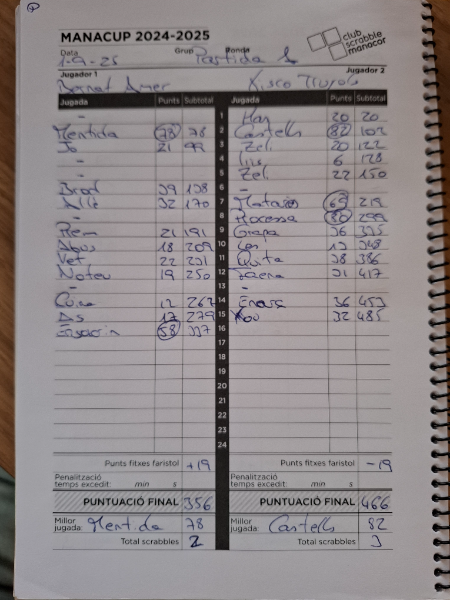 MANACUP 2024-2025
club scrabble manacor
Data 1-9-25 Grup Ronda Partida 1
Jugador 1 Jugador 2
Bernat Amer Xisco
Jugada Punts Subtotal Jugada Punts Subtotal
- 1 20 20
Mentida 78 78 2 Castells 82 102
Jo 21 99 3 Zel 20 122
- 4 6 128
- 5 Zel 22 150
39 138 6 -
32 170 7 69 219
- 8 Processa 80 299
Rem 21 191 9 Grapa 36 335
18 209 10 13 348
Vet 22 231 11 38 386
19 250 12 31 417
- 13 -
12 267 14 36 453
As 12 279 15 32 485
58 337 16
17
18
19
20
21
22
23
24
Punts fitxes faristol +19 Punts fitxes faristol -19
Penalització temps excedit: min s Penalització temps excedit: min s
PUNTUACIÓ FINAL 356 PUNTUACIÓ FINAL 466
Millor jugada: Mentida 78 Millor jugada: Castells 82
Total scrabbles 2 Total scrabbles 3